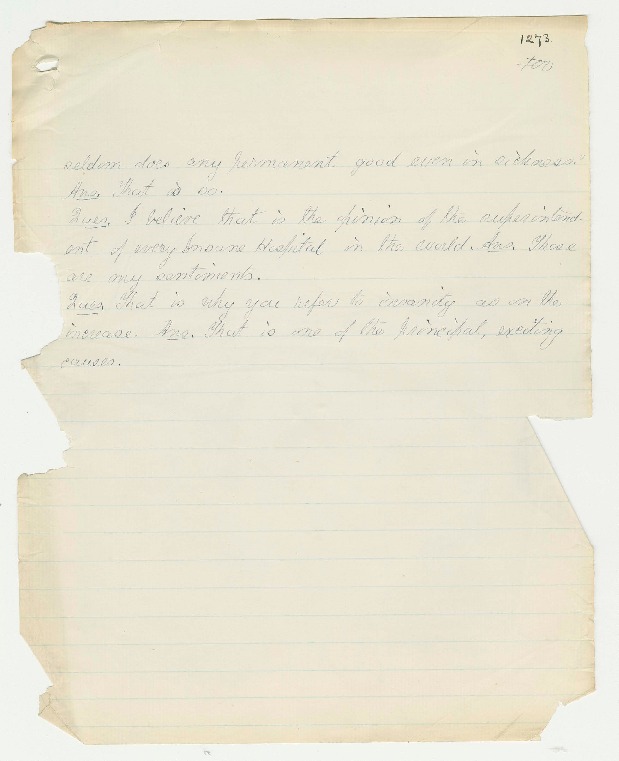 1273.
seldom does any permanent good even in sickness?
Ans. That is so.
Ques. I believe that is the pinion of the superintend-
ent of every Insane Hospital in the world. Ans. Those
are my sentiments.
Ques. That is why you refer to insanity as on the
increase. Ans. That is one of the principal, exciting
causes.